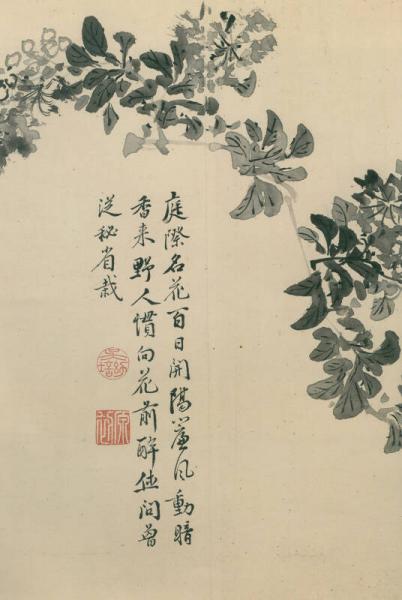 庭際名花百日開隔簾風動暗
香来野人慣向花前醉休問曾
從秘省栽